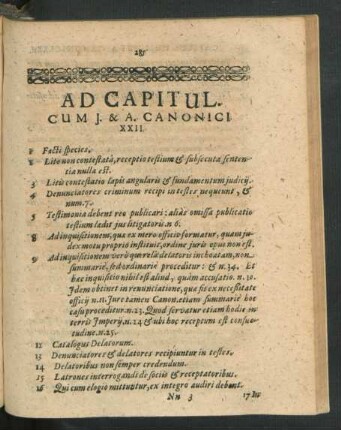 281
AD CAPITUL.
CUM J. & A. CANONICI
XXII.
1 Facti species.
2 Lite non contestatâ, receptio testium & subsecuta senten-
tia nulla est.
3 Litis contestatio lapis angularis & fundamentum judicij.
4 Denunciatores criminum recipi in testes nequeunt, &
num. 7.
5 Testimonia debent reo publicari: aliàs omissa publicatio
testium lædit jus litigatoris. n 6.
8 Ad inquisitionem, quæ ex mero officio formatur, quam ju-
dex motu proprio instituit, ordine juris opus non est.
9 Ad inquisitionem verò quærelæ delatoris inchoatam, non
summariè, sed ordinariè proceditur: & n. 34. Et
hæc inquisitio nihil est aliud, quàm accusatio. n. 10.
Idem obtinet in renunciatione, quæ fit ex necessitate
officij n. 11. Jure tamen Canon. etiam summariè hoc
casu proceditur. n. 23. Quod servatur etiam hodie in
terris Imperij. n. 24 & ubi hoc receptum est consue-
tudine. n. 25.
12 Catalogus Delatorum.
13 Denunciatores & delatores recipiuntur in testes.
14 Delatoribus non semper credendum.
15 Latrones interrogandi de sociis & receptatoribus.
16 Qui cum elogio mittuntur, ex integro audiri debent.
Nn 3 17 In